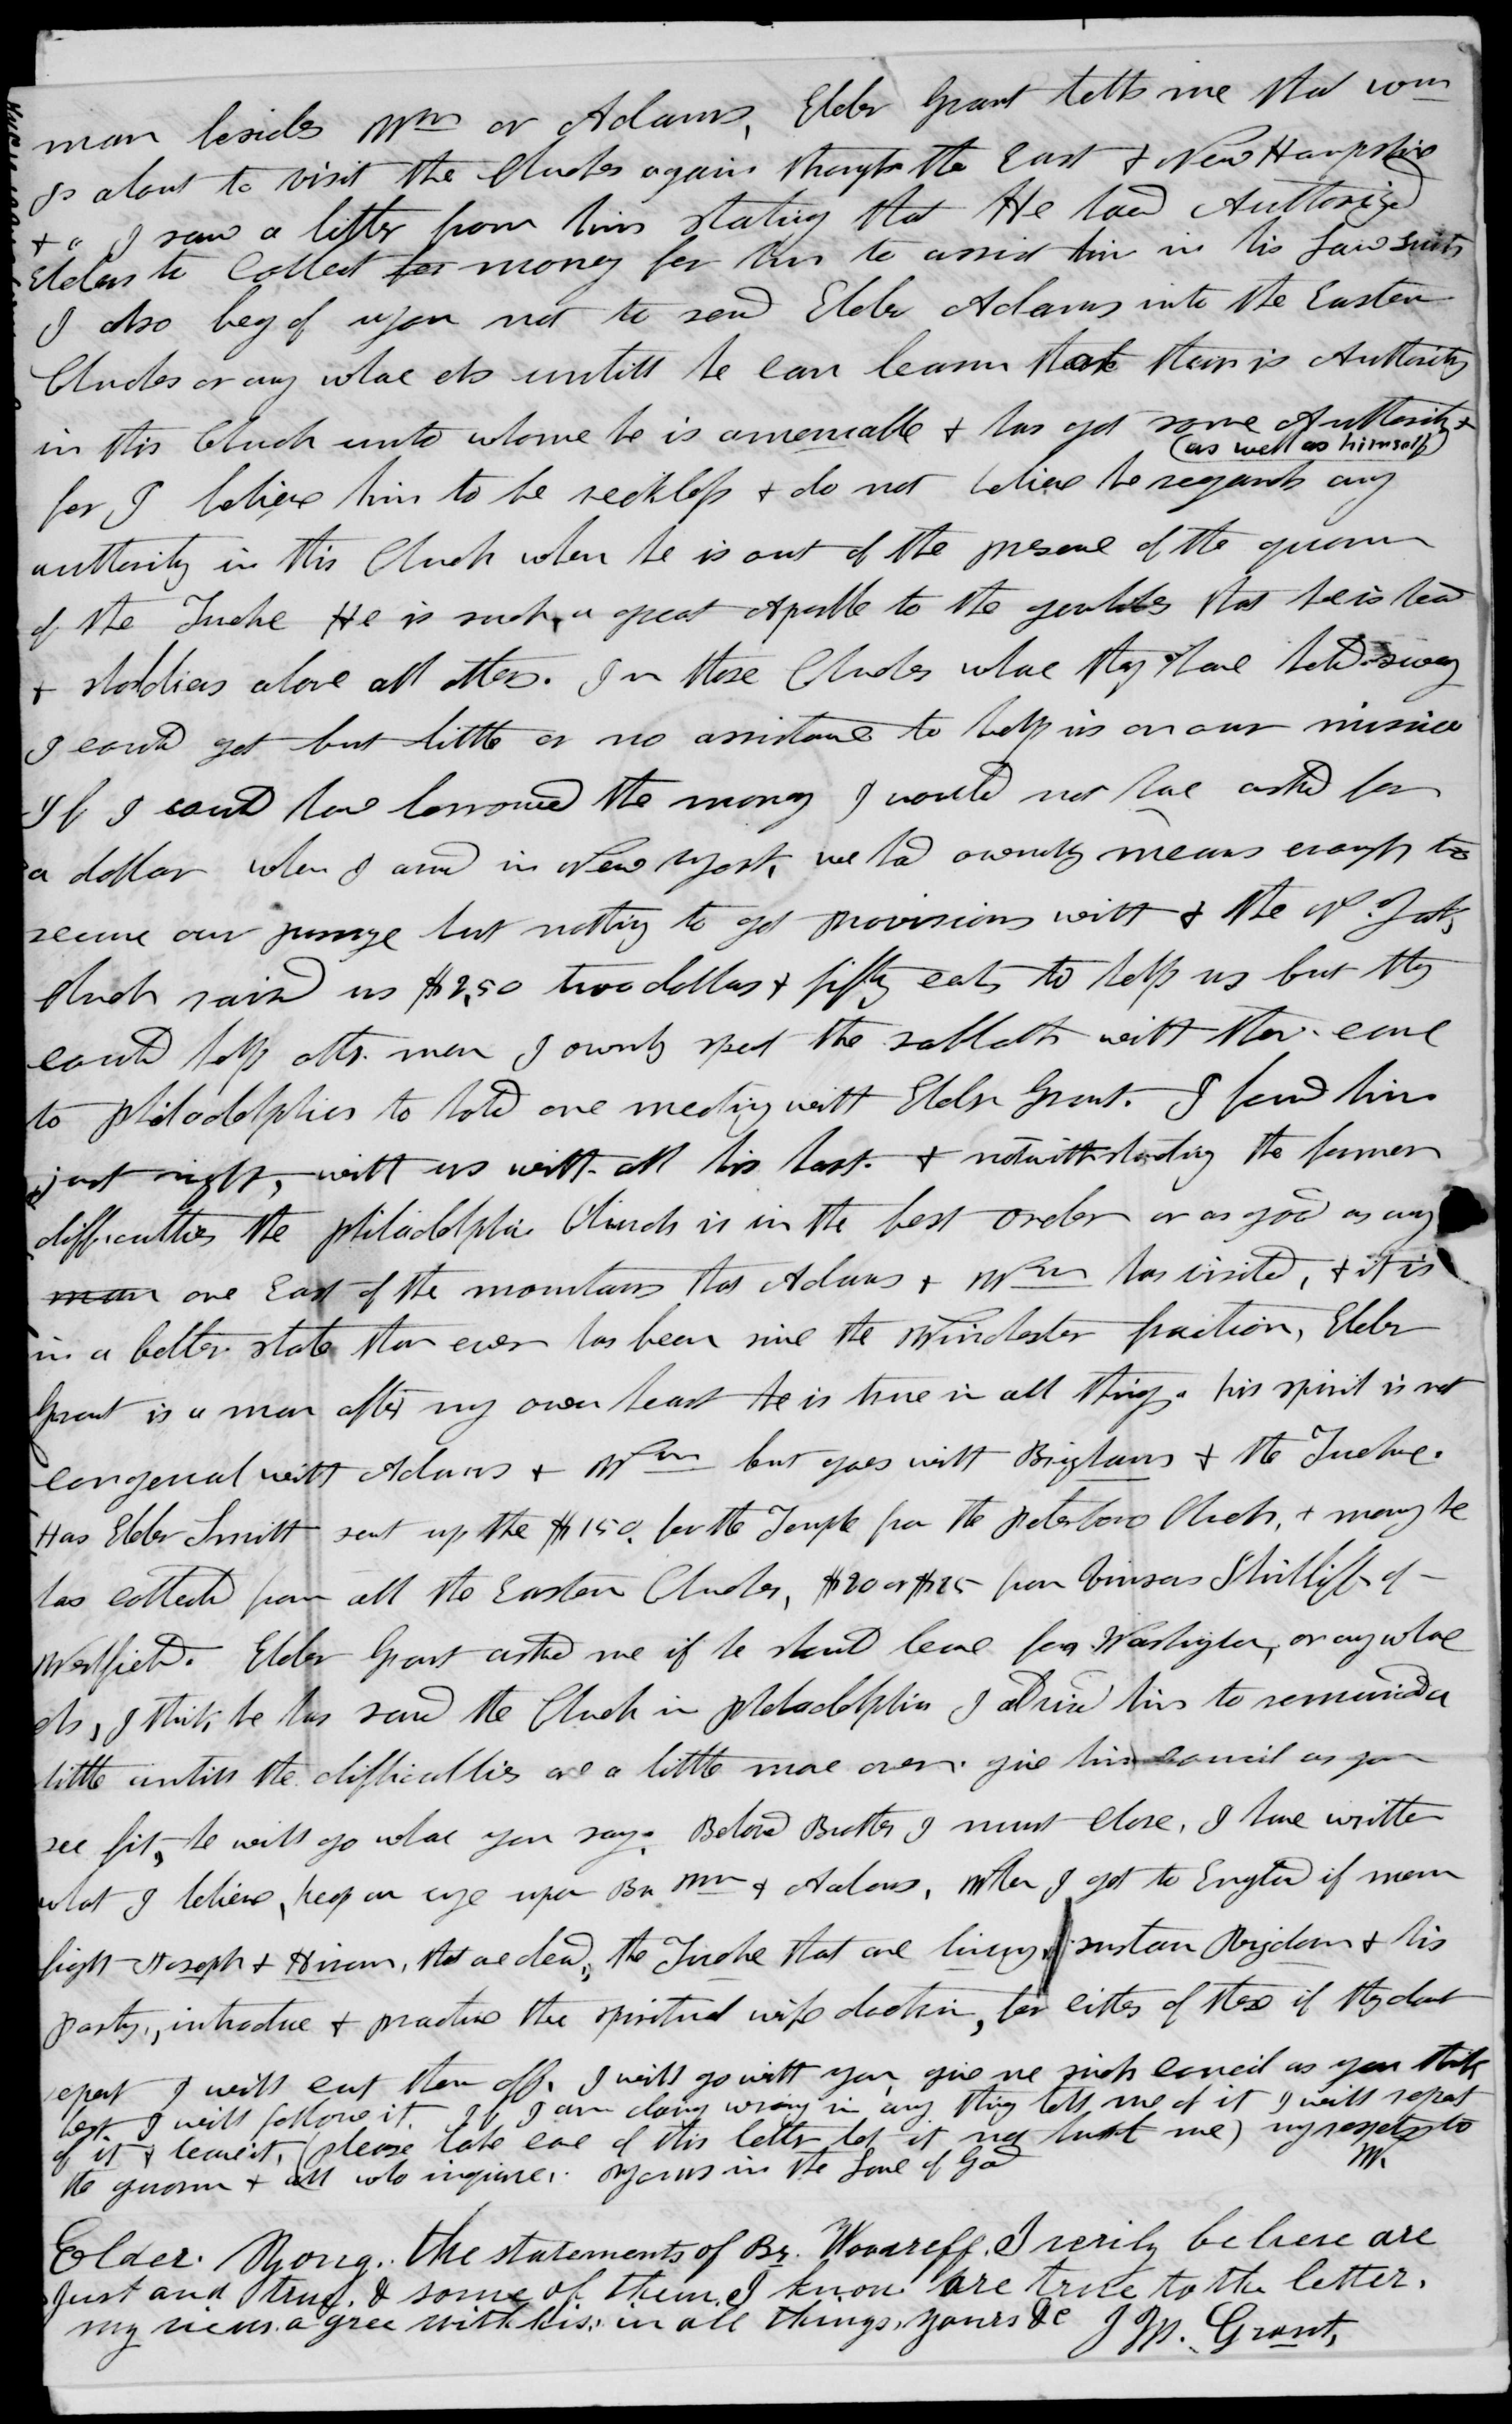 man besides Wm or Adams, Elder Grant tells me that Wm
is about to visit the Churches again through the East & New Hampshire
& I saw a letter from him stating that He had Authorized
Elders to Collect for money for him to assist him in his Law Suits
I also beg of you not to send Elder Adams into the Eastern
Churches or any whare els untill he can learn that thair is Authority
in this Church unto whome he is amenable & has got some Authority
(as well as himself)
for I believe him to be reckless & do not believe he regards any
authority in this Church when he is out of the presence of the quorum
of the Twelve He is such a great Apostle to the gentiles that he is head
& sholdiers above all others. In those Churches whare they have held sway
I could get but little or no assistance to help us on our mission
If I could have borrowed the money I would not have asked for
a dollar when I arrived in New York, we had ownly means enough to
secure our passage but nothing to get provisions with & the N. York
Church raised us $2,50 two dollars & fifty cents to help us but they
could help other men I ownly spent the sabbath with them came
to Philadelphia to hold one meeting with Elder Grant. I found him
just right, with us with all his heart. & notwithstanding the former
difficulties the Philadelphia Church is in the best order or as good as any
man one East of the mountains that Adams & Wm has visited, & it is
in a better state than ever has been since the Winchester faction, Elder
Grant is a man after my own heart he is true in all things. his spirit is not
congenial with Adams & Wm but goes with Brigham & the Twelve.
Has Elder Smith sent up the $150. for the Temple from the Peterboro Church, & money he
has collected from all the Eastern Churches, $20 or $25 from Vinson Shirtliff of
Westfield. Elder Grant asked me if he should leave for Washington, or any whare
els, I think he has saved the Church in Philadelphia I advised him to remain a
little untill the difficulties are a little more over. give him council as you
see fit, he will go whare you say. Beloved Brother I must close. I have written
what I believe, keep an eye upon Br Wm & Adams, When I get to England if men
fight Joseph & Hiram, that are dead, the Twelve that are living, sustain Rigdon & his
party, introduce & practice the spiritual wife doctrin, for either of these if they dont
repent I will cut them off. I will go with you, give me such council as you think
best I will follow it. If I am doing wrong in any thing tell me of it I will repent
of it & leave it, (please take care of this letter let it not hurt me) my respects to
the quorum & all who inquire. Yours in the Love of God W.
Elder. Young.. the statements of Br. Woodreff. I verily beleve are
Just and true. & some of them. I know are true to the letter.
my views. agree with his. in all things. yours &c J M. Grant,